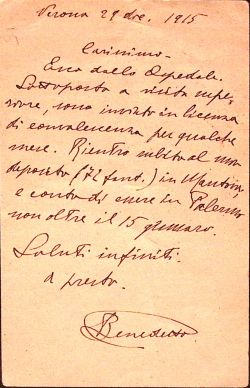 Verona 29 dic. 1915
Carissimo -
Esco dallo Ospedale.
Sottoposto a visita supe-
riore, sono inviato in licenza
di convalescenza per qualche
mese. Rientro subito al mio
deposito (72 fant.) in Mantova,
e conto di essere in Palermo
non oltre il 15 gennaro.
Saluti infiniti
a presto.
Benedetto